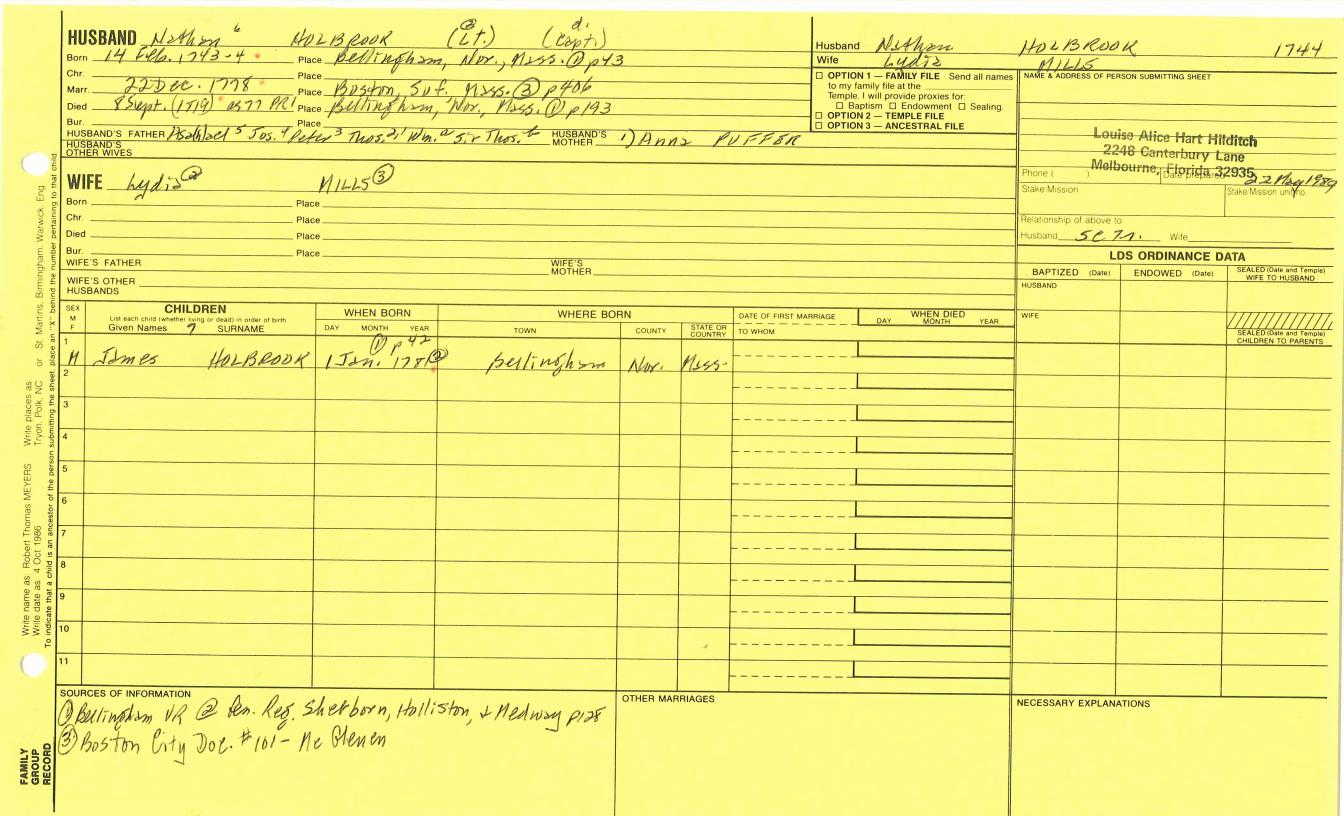 HUSBAND Nathan 6 HOLBROOK (Lt.) ② (Capt.) d.
Born 14 Feb. 1743-4 Place Bellingham, Nor., Mass. ① p43
Chr. Place
Marr. 22 Dec. 1778 Place Boston, Suf. Mass. ③ p406
Died 8 Sept. (1819) as 77 PR1 Place Bellingham, Nor., Mass. ① p193
Bur. Place
HUSBAND'S FATHER 5 Jos. 4 Peter 3 Thos. 2, 1 Wm. a Sir Thos. b HUSBAND'S MOTHER 1) Anna PUFFER
HUSBAND'S OTHER WIVES
Husband Nathan HOLBROOK 1744
Wife Lydia MILLS
☐ OPTION 1 — FAMILY FILE Send all names
to my family file at the
Temple. I will provide proxies for:
☐ Baptism ☐ Endowment ☐ Sealing.
☐ OPTION 2 — TEMPLE FILE
☐ OPTION 3 — ANCESTRAL FILE
NAME & ADDRESS OF PERSON SUBMITTING SHEET
Louise Alice Hart Hilditch
2248 Canterbury Lane
Melbourne, Florida 32935
Phone ( ) Date prepared 22 May 1989
Stake/Mission Stake/Mission unit no.
Relationship of above to
Husband Wife
WIFE Lydia ② MILLS ③
Born Place
Chr. Place
Died Place
Bur. Place
WIFE'S FATHER WIFE'S MOTHER
WIFE'S OTHER HUSBANDS
LDS ORDINANCE DATA
BAPTIZED (Date) ENDOWED (Date) SEALED (Date and Temple) WIFE TO HUSBAND
HUSBAND
WIFE
SEALED (Date and Temple) CHILDREN TO PARENTS
SEX M F
CHILDREN
List each child (whether living or dead) in order of birth
Given Names 7 SURNAME
WHEN BORN
DAY MONTH YEAR
WHERE BORN
TOWN COUNTY STATE OR COUNTRY
DATE OF FIRST MARRIAGE
TO WHOM
WHEN DIED
DAY MONTH YEAR
1 ① p42
M James HOLBROOK 1 Jan. 178 ② Bellingham Nor. Mass.
2
3
4
5
6
7
8
9
10
11
SOURCES OF INFORMATION
① Bellingham VR ② Gen. Reg. Sherborn, Holliston, & Medway p128
③ Boston City Doc. #101 - Mc Glenen
OTHER MARRIAGES
NECESSARY EXPLANATIONS
Write name as Robert Thomas MEYERS Write places as Tryon, Polk, NC or St. Martins, Birmingham, Warwick, Eng.
Write date as 4 Oct 1986
To indicate that a child is an ancestor of the person submitting the sheet, place an "X" behind the number pertaining to that child
FAMILY
GROUP
RECORD